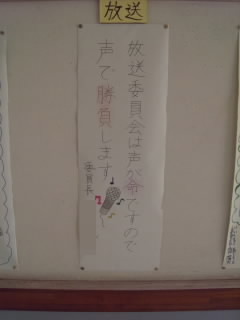 放送
放送委員会は声が命ですので
声で勝負します
委員長